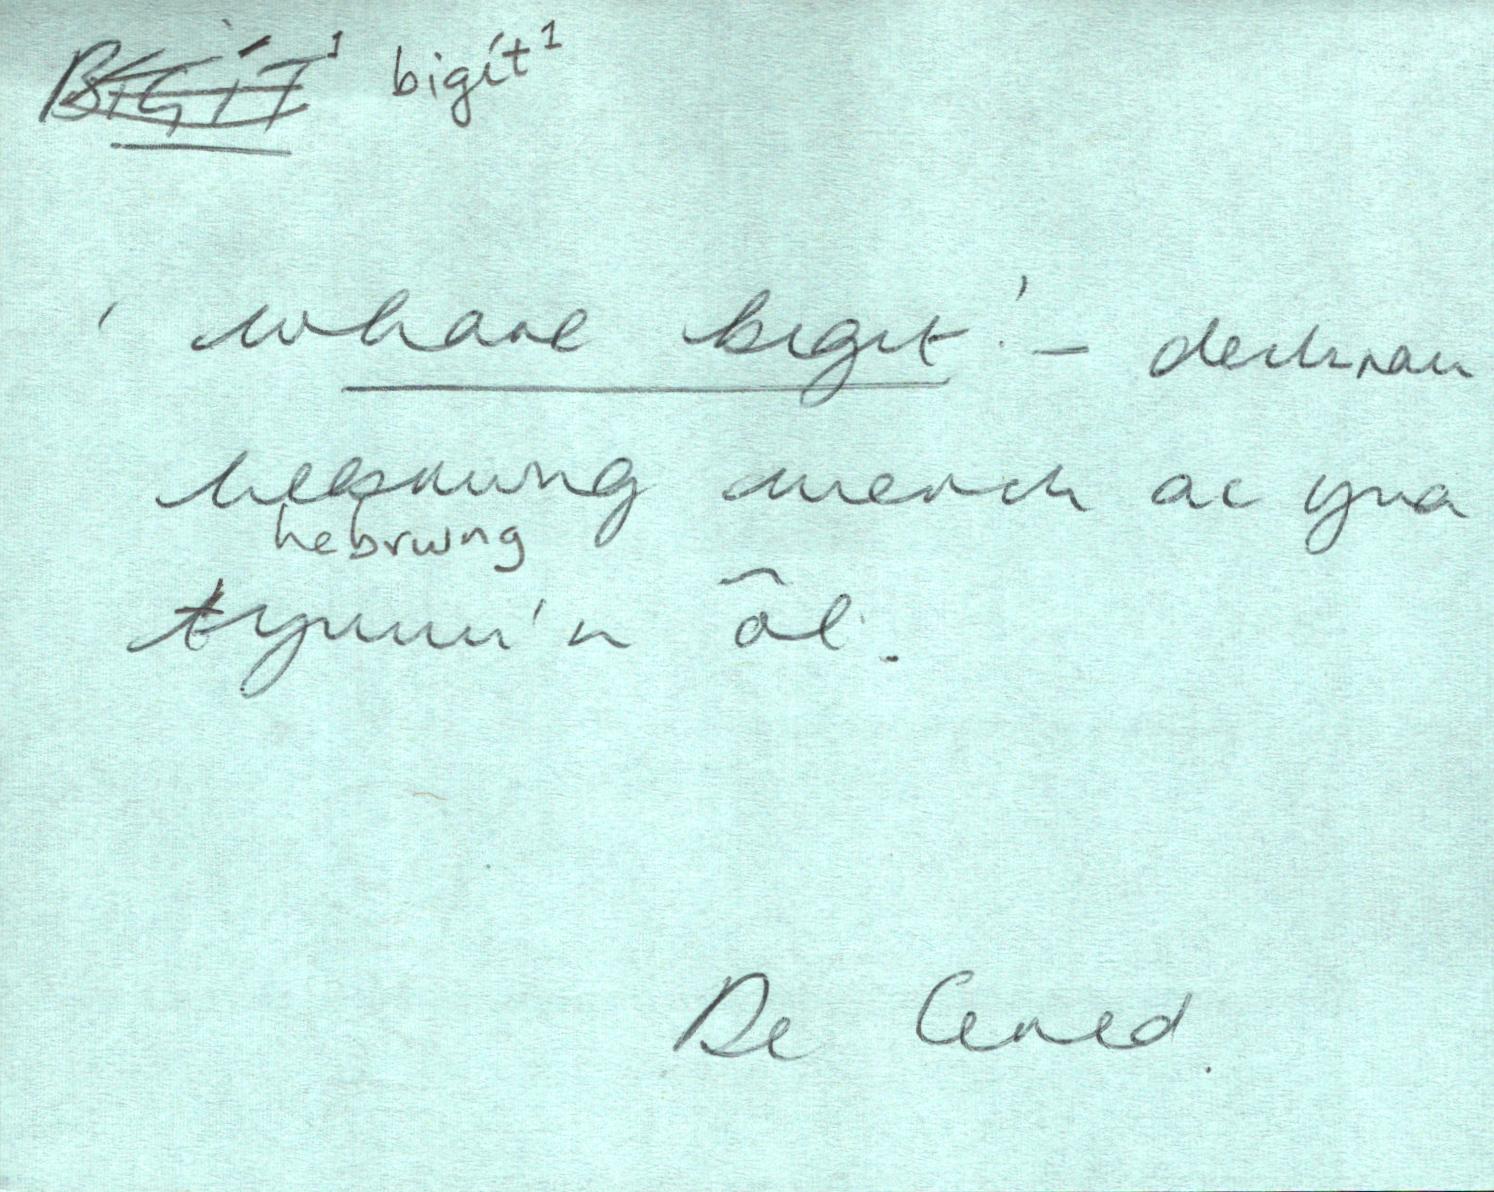 BIGÍT¹ bigít¹
'whare bigit' – dechrau
hebrwng merch ac yna
hebrwng
tynnu'n ôl.
De Cered.